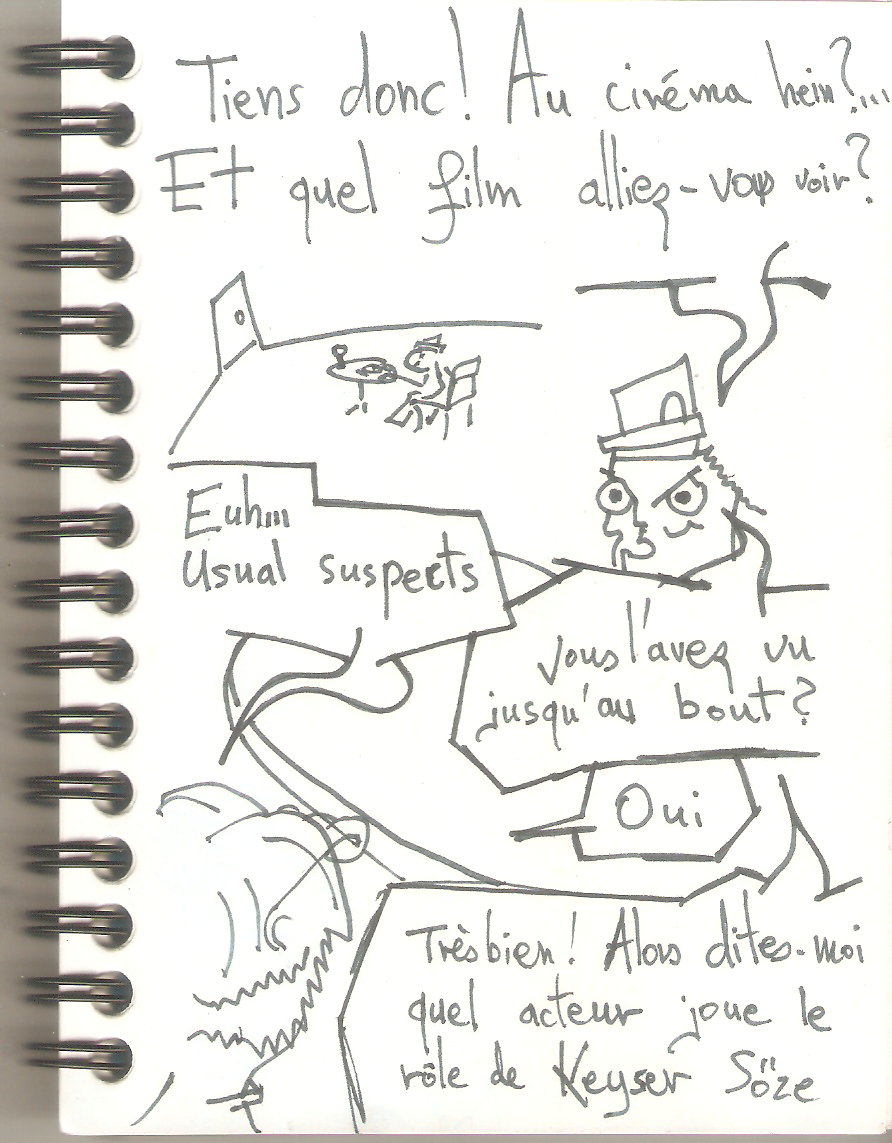 Tiens donc! Au cinéma hein?...
Et quel film alliez-vous voir?
Euh...
Usual suspects
vous l'avez vu
jusqu'au bout?
Oui
Très bien! Alors dites-moi
quel acteur joue le
rôle de Keyser Söze